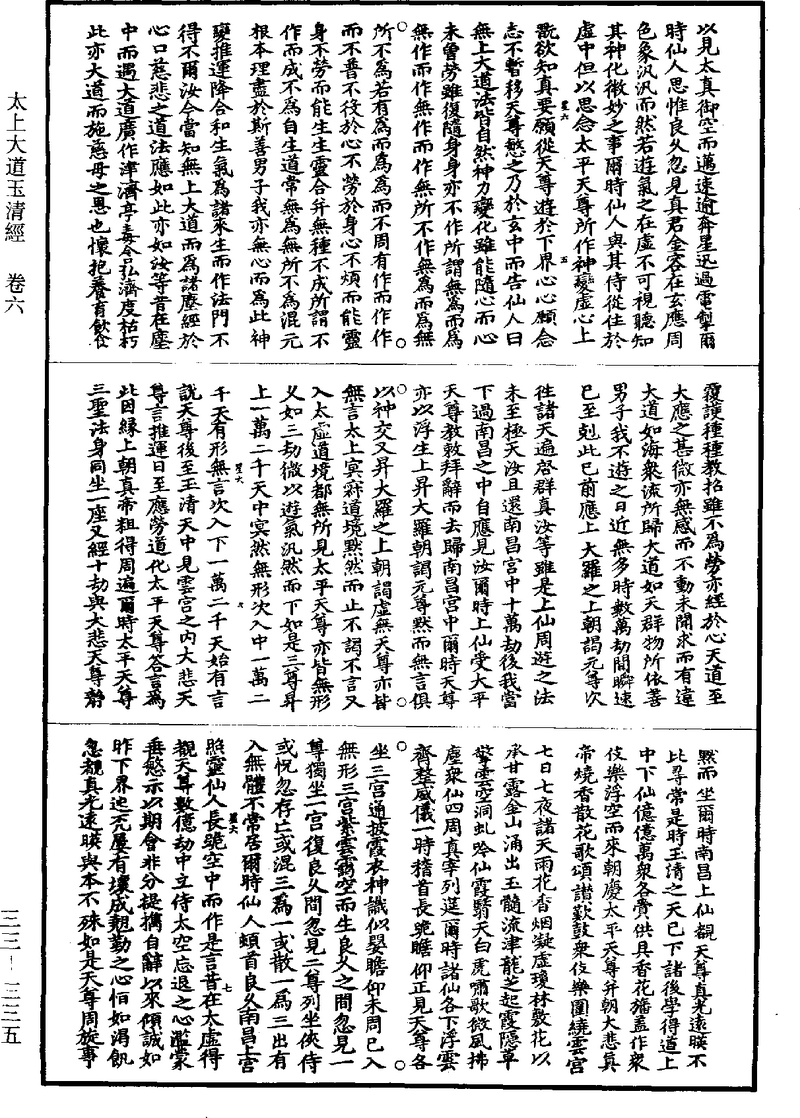 太上大道玉清經　卷六
三三―三三五
以見太真御空而邁速逾奔星迅過電掣爾
時仙人思惟良久忽見真君金容在玄應周
色象汎汎而然若遊氣之在虛不可視聽知
其神化微妙之事爾時仙人與其侍從住於
虛中但以思念太平天尊所作神變虛心上
翫欲知真要願從天尊遊於下界心心願念
志不暫移天尊愍之乃於玄中而告仙人曰
無上大道法皆自然神力變化雖能隨心而心
未曾勞雖復隨身身亦不作所謂無為而為
無作而作無作而作無所不作無為而為無
所不為若有為而為為而不周有作而作作
而不普不役於心不勞於身心不煩而能靈
身不勞而能生生靈合并無種不成所謂不
作而成不為自生道常無為無所不為混元
根本理盡於斯善男子我亦無心而為此神
變推運降合和生氣為諸來生而作法門不
得不爾汝今當知無上大道而為諸塵經於
心口慈悲之道法應如此亦如汝等昔在塵
中而遇大道廣作津濟亭毒令弘濟度枯朽
此亦大道而施慈母之恩也懷抱養育飲食
覆護種種教招雖不為勞亦經於心天道至
大應之甚微亦無感而不動未聞求而有違
大道如海眾流所歸大道如天群物所依善
男子我不遊之日近無多時數萬劫間瞬速
已至剋此已前應上大羅之上朝謁元尊次
往諸天遍啓群真汝等雖是上仙周遊之法
未至極天汝且還南昌宮中十萬劫後我當
下過南昌之中自應見汝爾時上仙受太平
天尊教敕拜辭而去歸南昌宮中爾時天尊
亦以浮生上昇大羅朝謁元尊默而無言俱
以神交又昇大羅之上朝謁虛無天尊亦皆
無言太上冥寂道境默然而止不謁不言又
入太虛道境都無所見太平天尊亦皆無形
又如三劫微以遊氣汎然而下如是三尊昇
上一萬二千天中冥然無形次入中一萬二
千天有形無言次入下一萬二千天始有言
說天尊後至玉清天中見雲宮之內大悲天
尊言推運日至應勞道化太平天尊答言為
此因緣上朝真帝粗得周遍爾時太平天尊
三聖法身同坐一座又經十劫與大悲天尊對
默而坐爾時南昌上仙覩天尊真光遠暎不
比尋常是時玉清之天已下諸後學得道上
中下仙億億萬眾各賫供具香花旛蓋作眾
伎樂浮空而來朝慶太平天尊并朝大悲真
帝燒香散花歌頌讃歎鼓眾伎樂圍繞雲宮
七日七夜諸天雨花香烟凝虛瓊林敷花以
承甘露金山涌出玉髓流津龍芝起霞隱草
擎雲空洞虬吟仙霞翳天白虎嘯歌微風拂
塵眾仙四周真宰列筵爾時諸仙各下浮雲
齊整威儀一時稽首長跪瞻仰正見天尊各
坐三宮通披霞衣神識似嬰瞻仰未周已入
無形三宮紫雲靄空而生良久之間忽見一
尊獨坐一宮復良久間忽見二尊列坐俠侍
或怳忽存亡或混三為一或散一為三出有
入無體不常居爾時仙人頓首良久南昌上宮
照靈仙人長跪空中而作是言昔在太虛得
覩天尊數億劫中立侍太空忘退之心濫蒙
垂愍示以期會非分提攜自辭以來傾誠如
昨下界迷荒屢有壞成翹勤之心恒如渴飢
忽覩真光遠暎與本不殊如是天尊周旋事